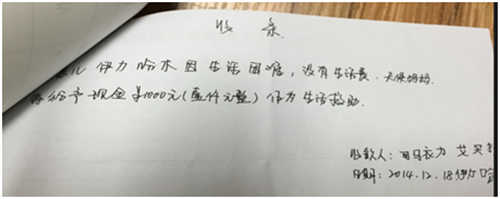 收条
伊力哈木因生活困难，没有生活费.天使妈妈
给予现金￥1000元(壹仟元整)作为生活救助.
收款人：司马衣力 艾买
日期：2014.12.18